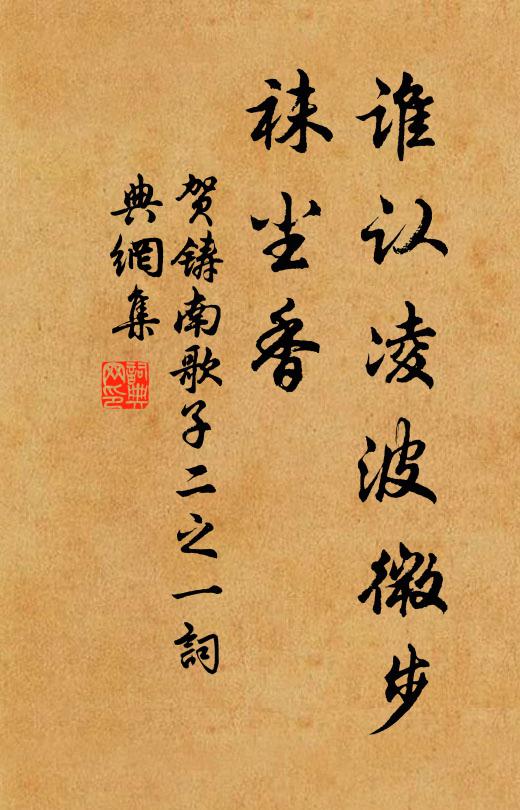 谁认凌波微步
袜尘香
贺铸南歌子二之一詞
典網集
詞典网印